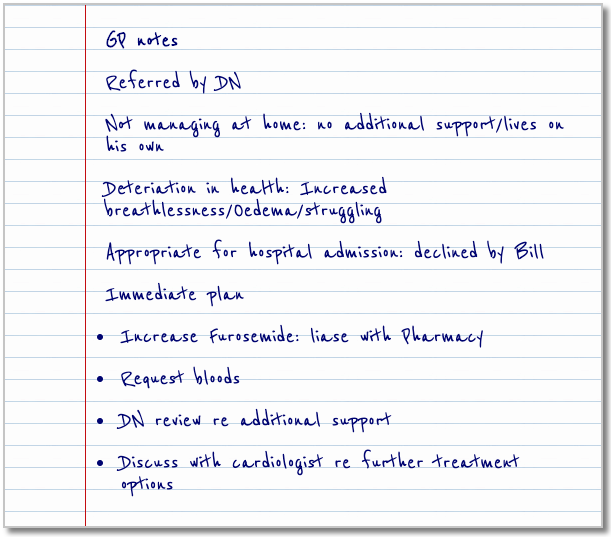 GP notes
Referred by DN
Not managing at home: no additional support/lives on
his own
Deteriation in health: Increased
breathlessness/Oedema/struggling
Appropriate for hospital admission: declined by Bill
Immediate plan
• Increase Furosemide: liase with Pharmacy
• Request bloods
• DN review re additional support
• Discuss with cardiologist re further treatment
options